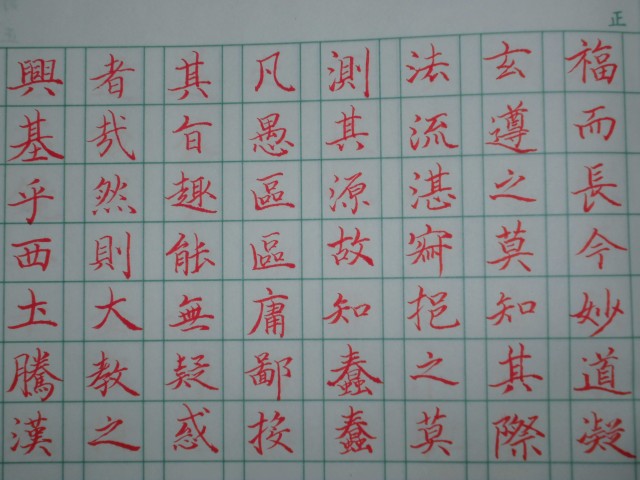 正
福而長今妙道凝
玄遵之莫知其際
法流湛寂挹之莫
測其源故知蠢蠢
凡愚區區庸鄙投
其旨趣能無疑惑
者哉然則大教之
興基乎西土騰漢